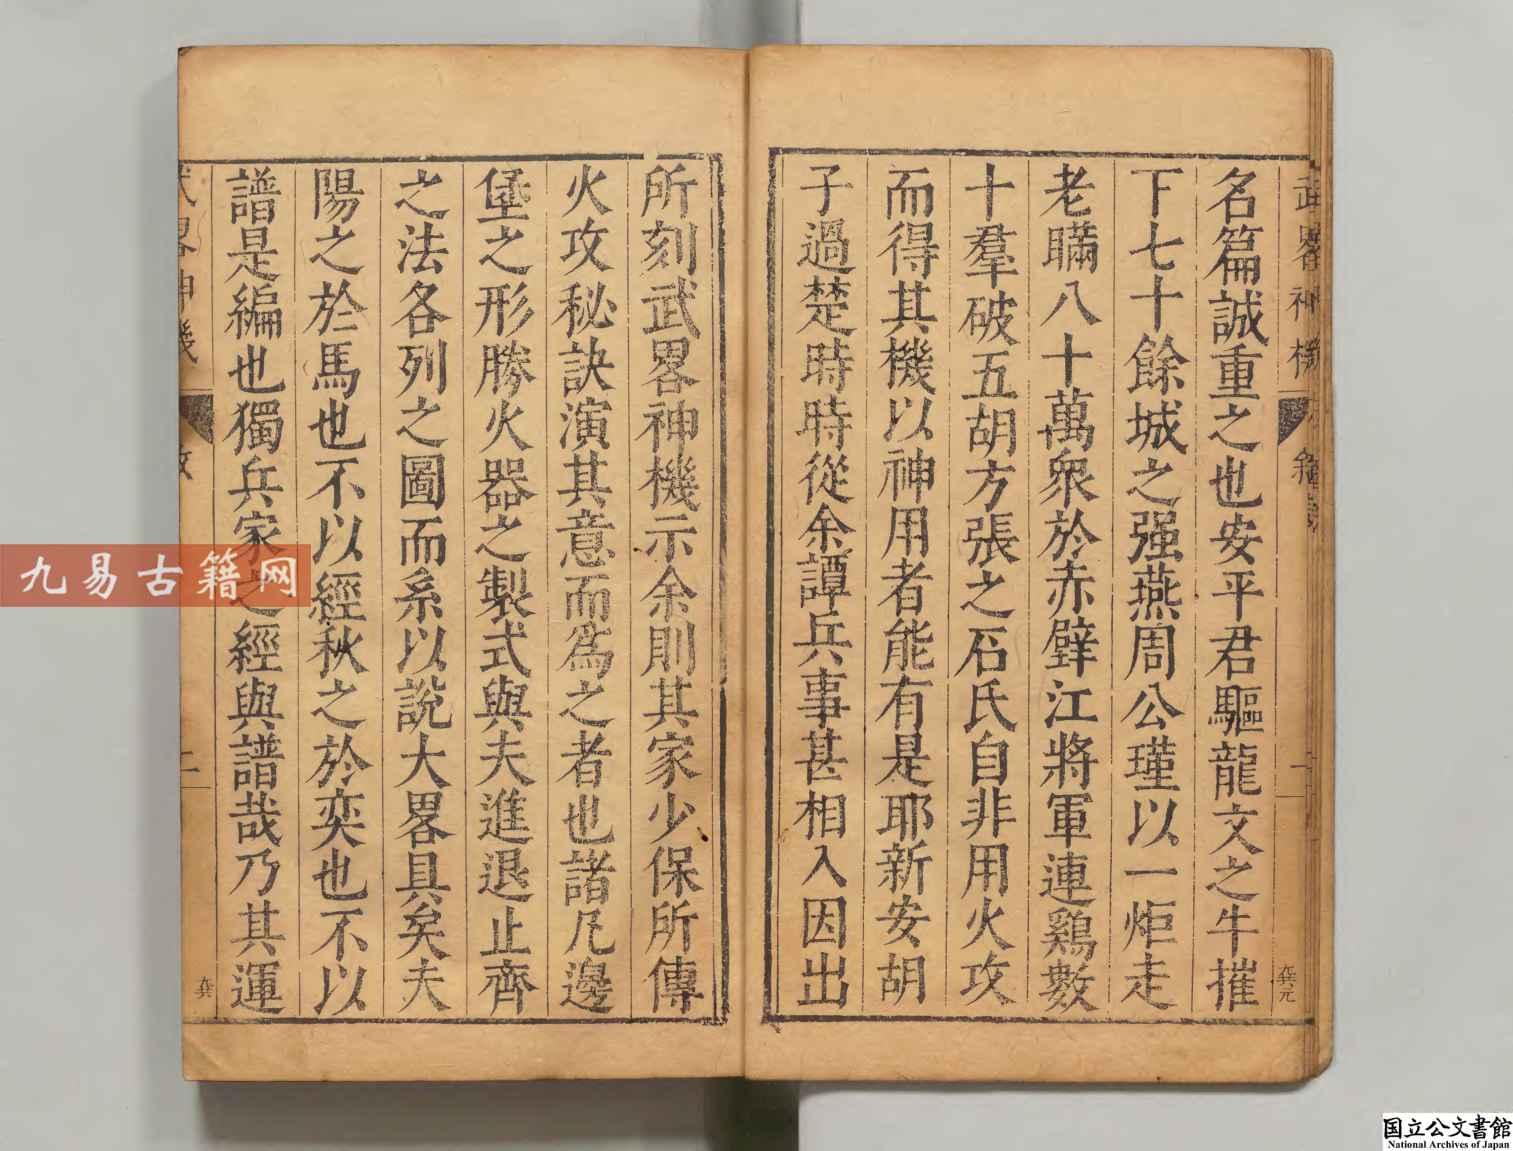 名篇誠重之也安平君驅龍文之牛摧
下七十餘城之强燕周公瑾以一炬走
老瞞八十萬衆於赤壁江將軍連鷄數
十羣破五胡方張之石氏自非用火攻
而得其機以神用者能有是耶新安胡
子過楚時時從余譚兵事甚相入因出
所刻武畧神機示余則其家少保所傳
火攻秘訣演其意而爲之者也諸凡邊
堡之形勝火器之製式與夫進退止齊
之法各列之圖而系以說大畧具矣夫
陽之於馬也不以經秋之於奕也不以
譜是編也獨兵家之經與譜哉乃其運
武畧神機
二
九易古籍网
国立公文書館
National Archives of Japan